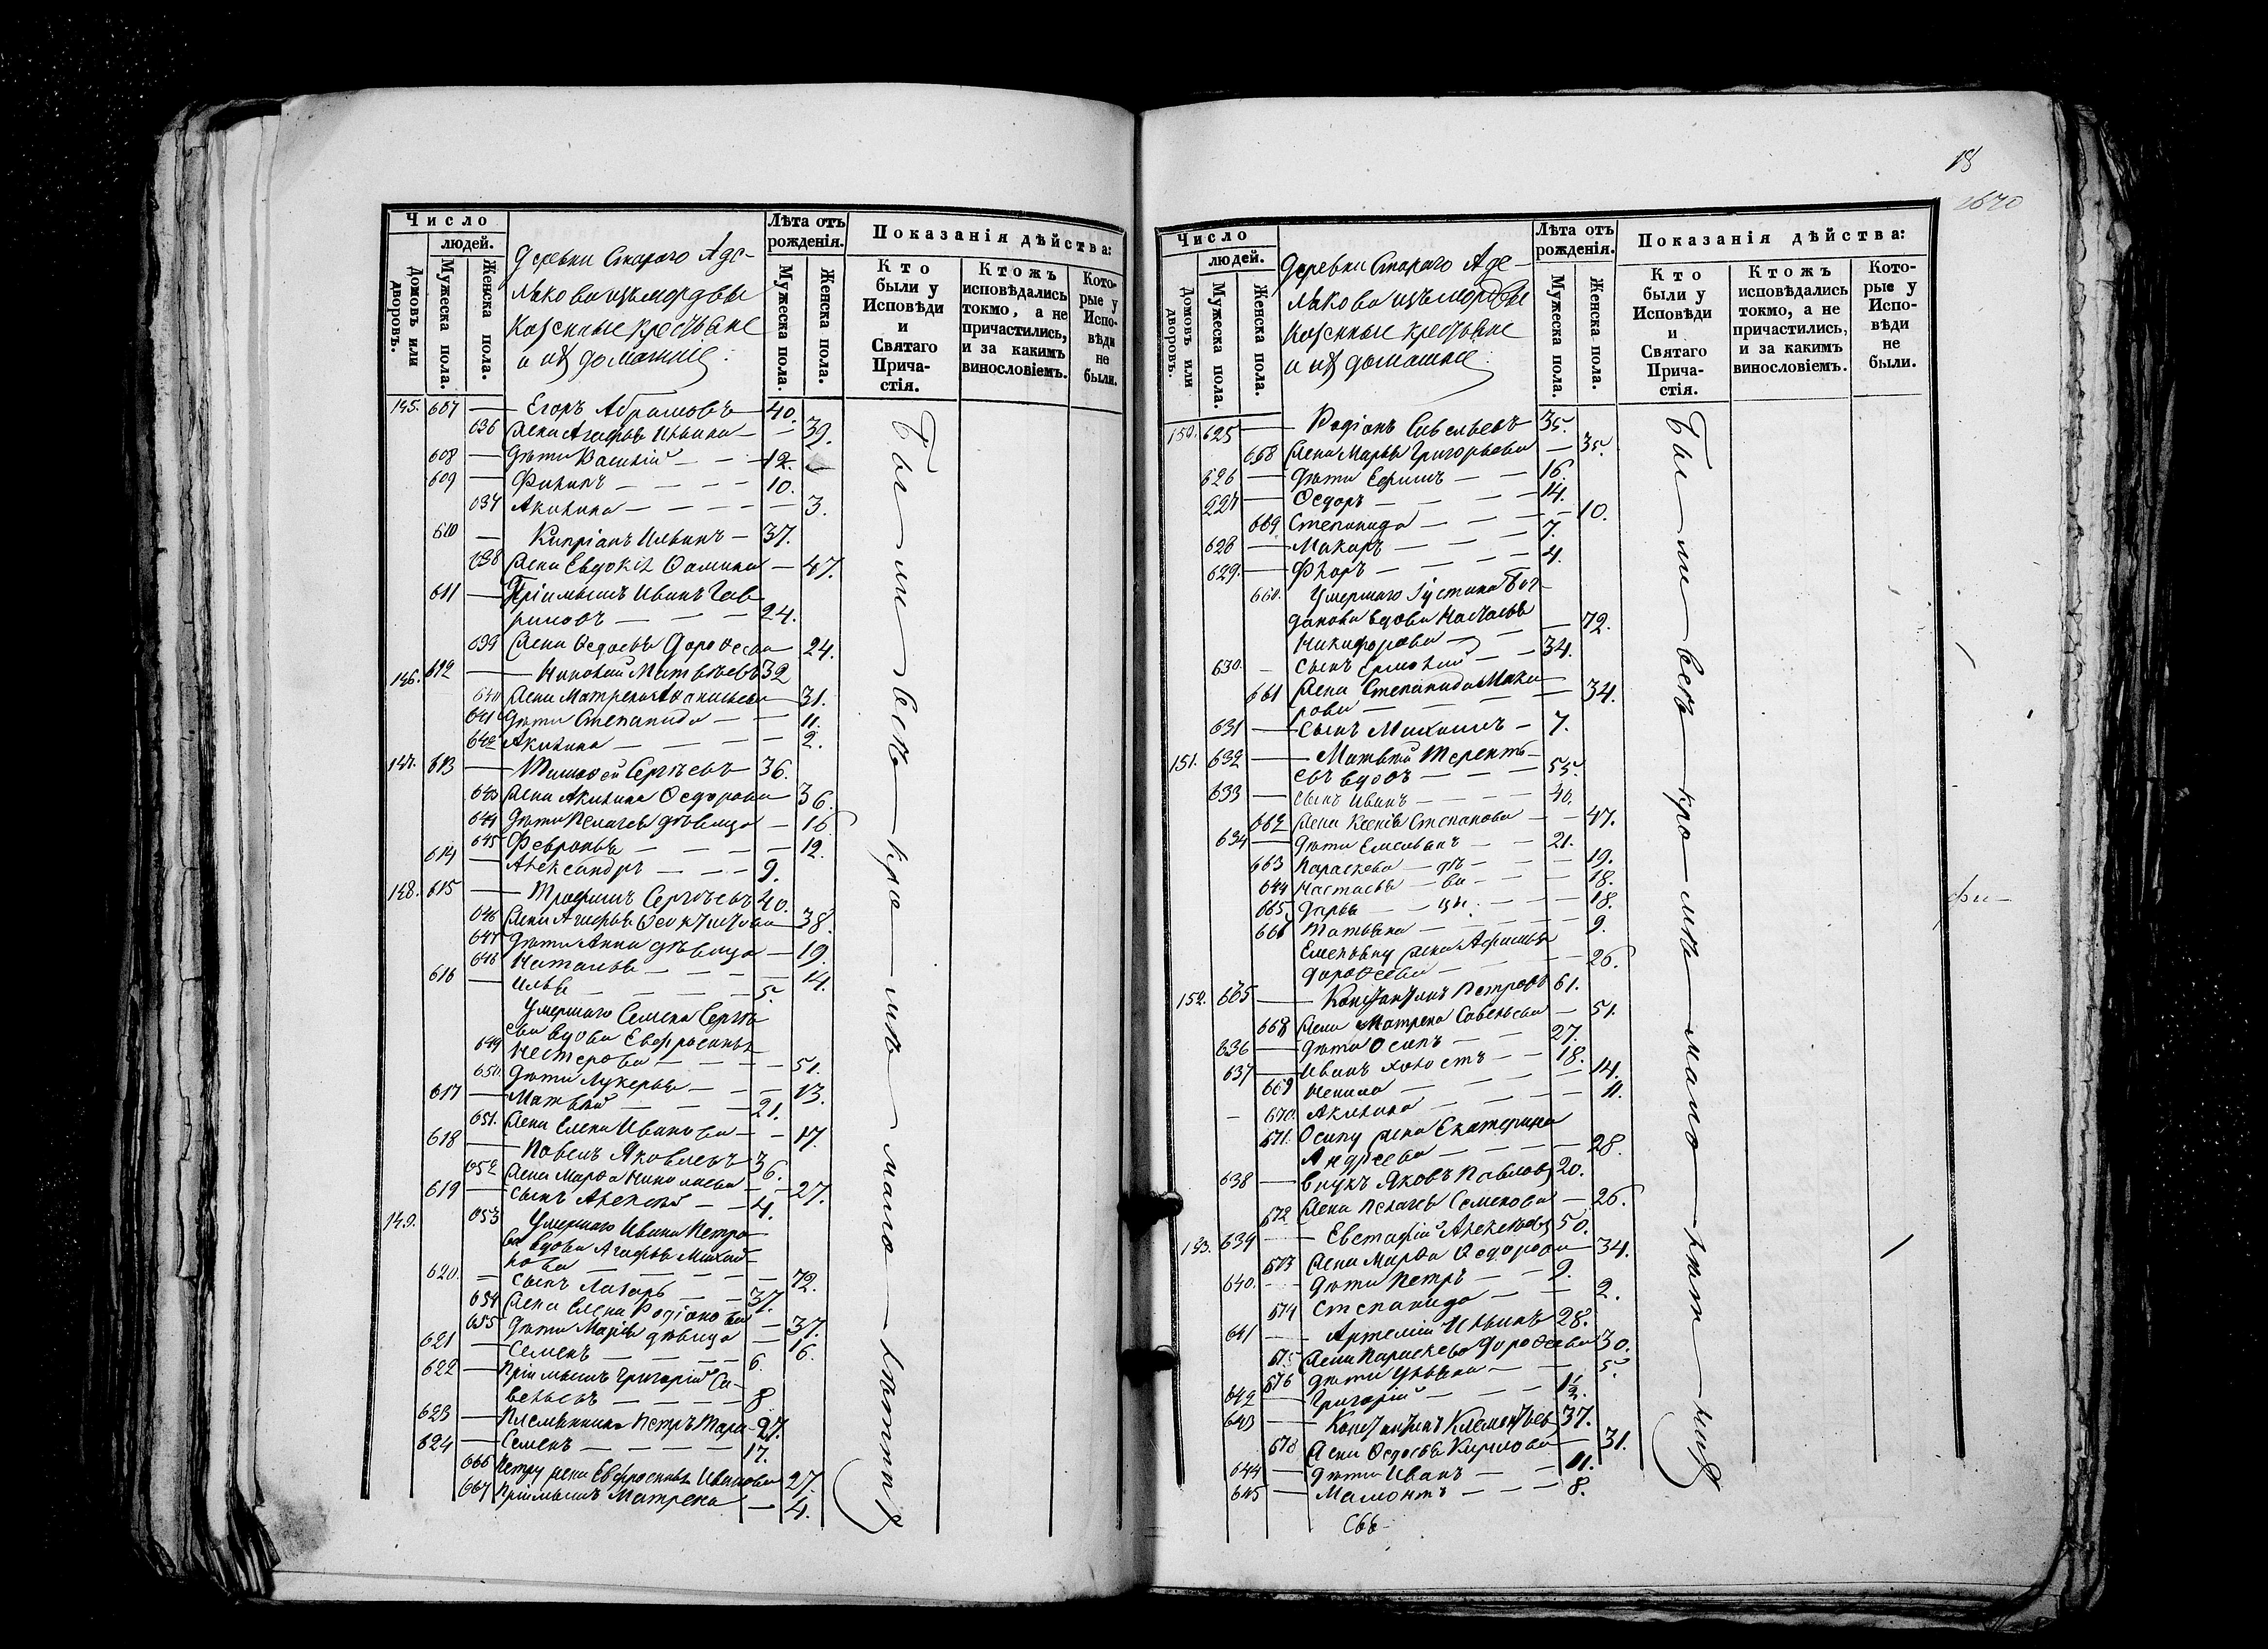 Число
людей.
Домовъ или дворовъ.
Мужеска пола.
Женска пола.
Деревни Стараго Аде-
лякова изъ мордвы
Казенные крестьяне
и ихъ домашніе:
Лѣта отъ рожденія.
Мужеска пола.
Женска пола.
Показанія дѣйства:
Кто были у Исповѣди и Святаго Прича-стія.
Ктожъ исповѣдались токмо, а не причастились, и за какимъ винословіемъ.
Кото-рые у Испо-вѣди не были.
145. 607 — Егоръ Абрамовъ — 40.
636 Жена Агафья Ильина — 39.
608 — Дѣти Василій — 12.
609 — Филипъ — 10.
637 Акилина — 3.
610 — Кипріанъ Ильинъ — 37.
638 Жена Евдокія Фомина — 47.
611 — Пріимышъ Иванъ Гав-
риловъ — 24.
639 Жена Ѳедосья Дороѳеева 24.
146. 612 — Николай Матвѣевъ 32
640 Жена Матрена Аѳанасьева — 31.
641 Дѣти Степанида — 11.
642 Акилина — 2.
147. 613 — Тимоѳей Сергѣевъ 36.
643 Жена Акилина Ѳедорова — 36.
644 Дѣти Пелагея дѣвица — 16
645 Февронья — 12.
614 — Александръ — 9.
148. 615 — Трофимъ Сергѣевъ 40.
646 Жена Агафья Ѳеоктистова 38.
647 Дѣти Анна дѣвица — 19.
648 Наталья — 14.
616 — Илья — 5.
Умершаго Семена Сергѣ-
ева вдова Евфросинья
649 Нестерова — 51.
650. Дѣти Лукерья — 13.
617 — Матвѣй — 21.
651. Жена Елена Иванова — 17.
618 — Павелъ Яковлевъ 36.
652 Жена Марѳа Николаева — 27.
619 — сынъ Алексѣй — 4.
149. 653 Умершаго Ивана Петро-
ва вдова Агафья Михай-
лова — 72.
620. — сынъ Лазарь — 37.
654 Жена Елена Родіонова — 37.
655 Дѣти Марія дѣвица — 16.
621 — Семенъ — 6.
622 — Пріимышъ Григорій Са-
вельевъ — 8
623 — Племянники Петръ Тара- 27.
624 — Семенъ — 17.
666 Петру жена Евфросинья Иванова 27.
667 Пріимышъ Матрена — 4.
Были всѣ кромѣ малолѣтнихъ
18
1640
Число
людей.
Домовъ или дворовъ.
Мужеска пола.
Женска пола.
Деревни Стараго Аде-
лякова изъ мордвы
Казенные крестьяне
и ихъ домашніе:
Лѣта отъ рожденія.
Мужеска пола.
Женска пола.
Показанія дѣйства:
Кто были у Исповѣди и Святаго Прича-стія.
Ктожъ исповѣдались токмо, а не причастились, и за какимъ винословіемъ.
Кото-рые у Испо-вѣди не были.
150. 625 — Родіонъ Савельевъ 35.
658 Жена Марья Григорьева — 35.
626 — Дѣти Ефимъ — 16.
627 — Ѳедоръ — 14.
669 Степанида — 10.
628 — Макаръ — 7.
629. — Флоръ — 4.
660. Умершаго Іустина Бог-
данова вдова Настасья
Никифорова — 72.
630. — сынъ Ермолай — 34.
661 Жена Степанида Мака-
рова — 34.
631 — сынъ Михаилъ — 7.
151. 632 — Матвѣй Теренть-
евъ вдовъ — 55.
633 — сынъ Иванъ — 40.
662 Жена Ксенія Степанова — 47.
634 — Дѣти Емельянъ — 21.
663 Параскева — дѣ- — 19.
644 Настасья — ви- — 18.
665 Дарья — цы. — 18.
666 Татьяна — 9.
Емельяну жена Афимья
Дороѳеева — 26.
152. 665 — Константинъ Петровъ 61.
668 Жена Матрена Савельева — 51.
636 — Дѣти Осипъ — 27.
637 — Иванъ холостъ — 18.
669 Ненила — 14.
670. Акилина — 11.
671. Осипу жена Екатерина
Андреева — 28.
638 — внукъ Яковъ Павловъ 20.
672 Жена Пелагея Семенова — 26.
153. 639 — Евстафій Алексѣевъ 50.
673 Жена Марѳа Ѳедорова — 34.
640. — Дѣти Петръ — 9.
674 Степанида — 2.
641 — Артемій Ильинъ 28.
675 Жена Параскева Дороѳеева 30.
676 Дѣти Ульяна — 5.
642 — Григорій — 1½.
643 — Константинъ Климентьевъ 37.
678 Жена Ѳедосья Кирилова — 31.
644 — Дѣти Иванъ — 11.
645 — Мамонтъ — 8.
Были всѣ кромѣ малолѣтнихъ